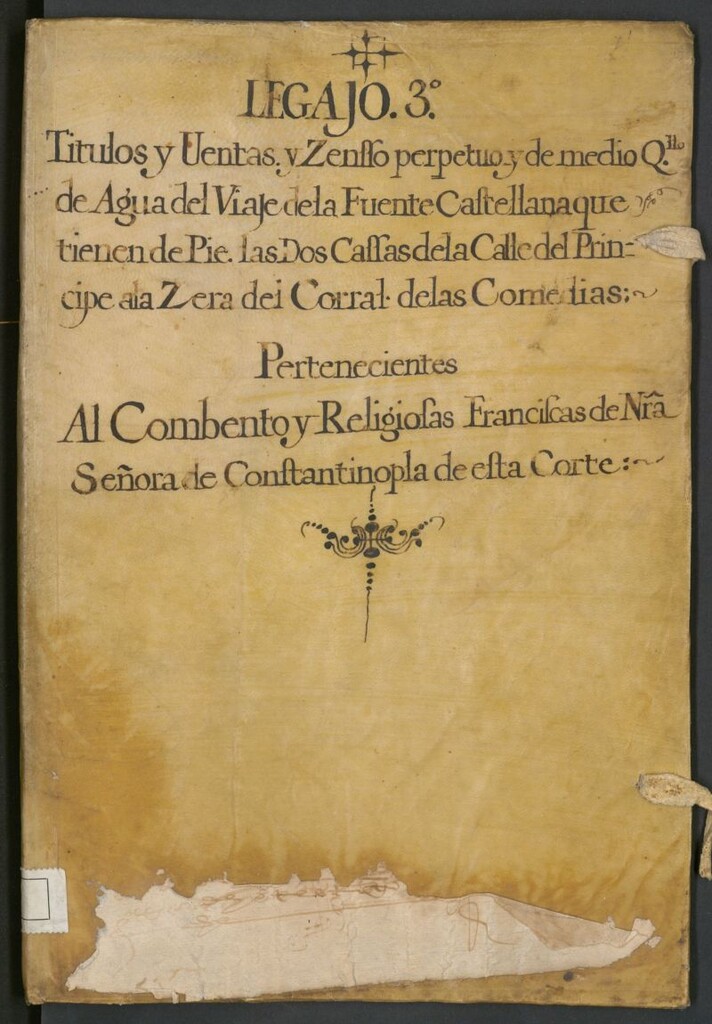 LEGAJO. 3º
Titulos y Uentas. y Zensso perpetuo. y de medio Q.llo
de Agua del Viaje dela Fuente Castellana que
tienen de Pie. las Dos Cassas dela Calle del Prin=
cipe ala Zera del Corral delas Comedias:~
Pertenecientes
Al Combento y Religiosas Franciscas de Nrâ
Señora de Constantinopla de esta Corte:~